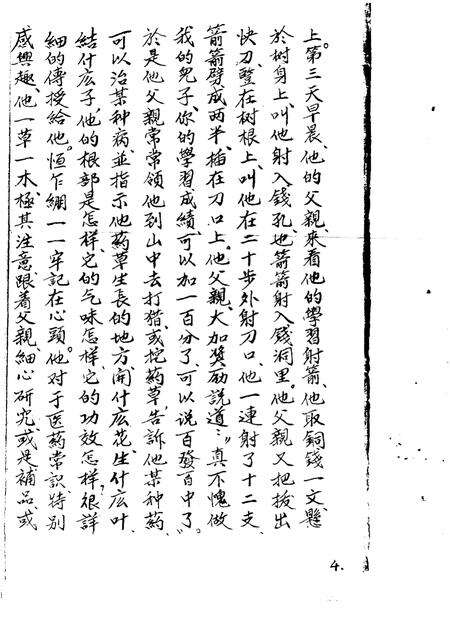 上。第三天早晨、他的父親、來看他的學習射箭、他取銅錢一文、懸
於树身上、叫他射入錢孔也箭箭射入錢洞里。他父親又把拔出
快刀、竪在树根上、叫他在二十步外射刀口、他一連射了十二支、
箭箭劈成两半、插在刀口上。他父親、大加奖励說道：“真不愧做
我的兒子、你的學習成績、可以加一百分了、可以說百發百中了。”
於是他父親常常領他到山中去打猎、或挖药草、告訴他某种药、
可以治某种病、並指示他葯草生長的地方、開什庅花、生什庅叶、
結什庅子、他的根部是怎样、它的气味怎样、它的功效怎样？很詳
細的傳授給他。恒乍綳一一牢記在心頭。他对于医药常識、特别
感興趣、他一草一木、極其注意、跟着父親細心研究、或是補品、或
4.